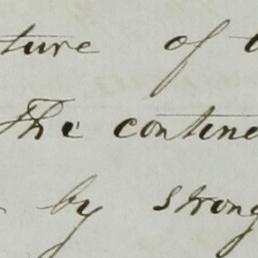 ture of
The contine
by strong